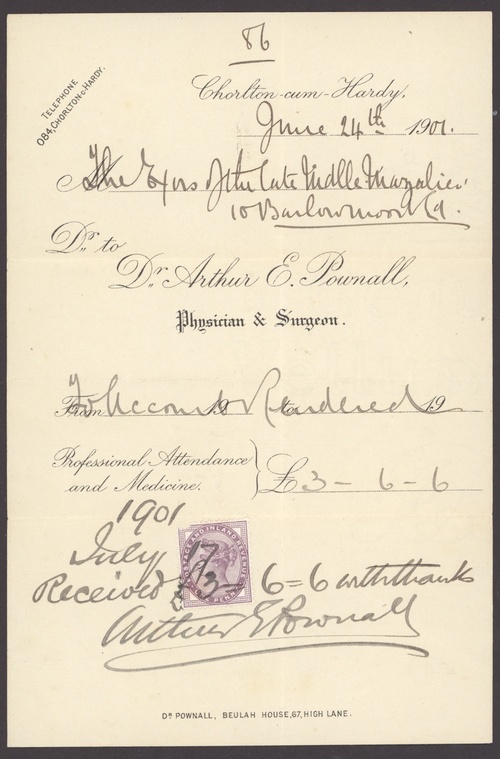 86
TELEPHONE
084, CHORLTON-C-HARDY.
Chorlton-cum-Hardy,
June 24th 1901.
The Exors of the late Mdlle
10 Barlowmoor Rd.
Dr. to
Dr. Arthur E. Pownall,
Physician & Surgeon.
From 19 to 19
To Account Rendered
Professional Attendance
and Medicine.
£3-6-6
1901
July 17
POSTAGE AND INLAND REVENUE
ONE PENNY
Received £3-6=6 with thanks
Arthur E Pownall
DR POWNALL, BEULAH HOUSE, 67, HIGH LANE.